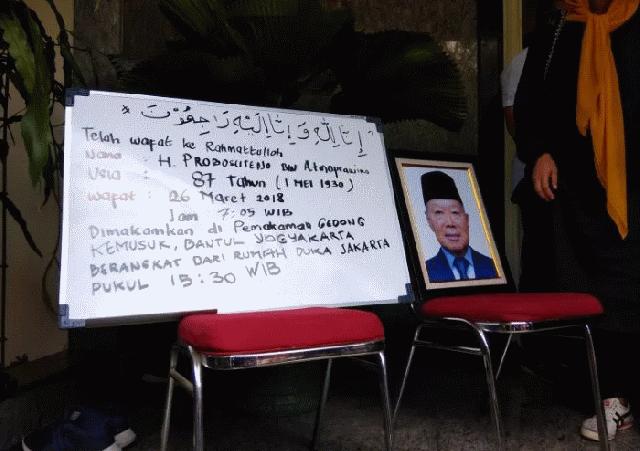 إِنَّا لِلّٰهِ وَإِنَّا إِلَيْهِ رَاجِعُوْنَ
Telah wafat ke Rahmatullah
Nama : H. PROBOSUTEDJO Bin Atmoprawiro
Usia : 87 Tahun (1 MEI 1930)
Wafat : 26 Maret 2018
Jam 7:05 WIB
Dimakamkan di Pemakaman GEDONG
KEMUSUK, BANTUL YOGYAKARTA
BERANGKAT DARI RUMAH DUKA JAKARTA
PUKUL 15:30 WIB